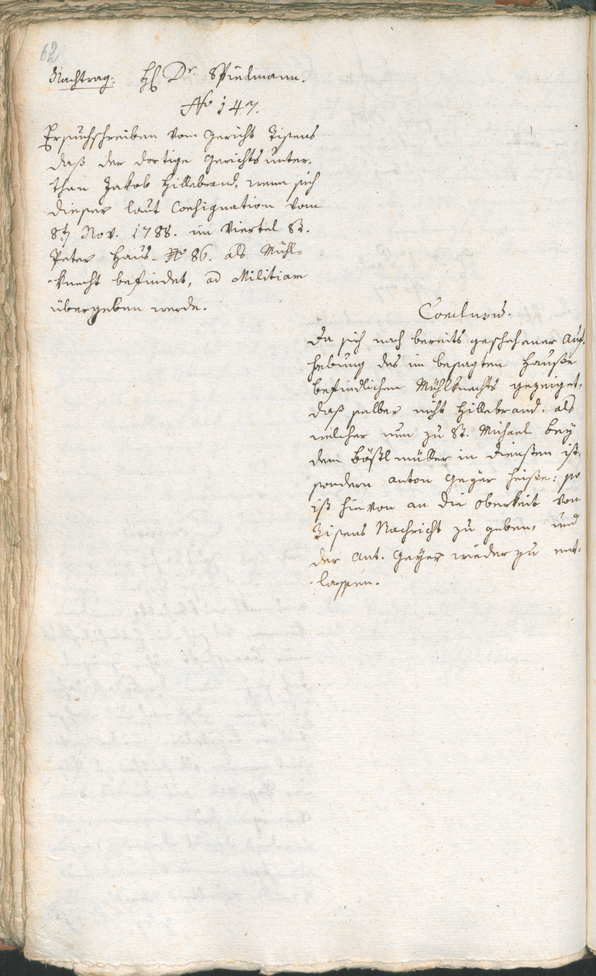 62
Nachtrag. H. Dr. Spielmann.
No 147.
Ersuchschreiben vom Gericht Tisens
daß der dortige Gerichtsunter-
than Jakob Hillebrand, wenn sich
dieser laut Consignation vom
8ten Nov. 1788. im Viertel St.
Peter Haus No 86. als Mühl-
knecht befindet, ad Militiam
übergeben werde.
Conclusum.
Da sich nach bereits geschehener Auf-
hebung des im besagten Hause
befindlichen Mühlknechts gezeiget,
daß selber nicht Hillebrand, als
welcher nun zu St. Michael bey
dem Bößlmüller in Diensten ist,
sondern Anton Geyer heiße: so
ist hievon an die Oberkeit von
Tisens Nachricht zu geben, und
der Ant. Geyer wieder zu ent-
lassen.